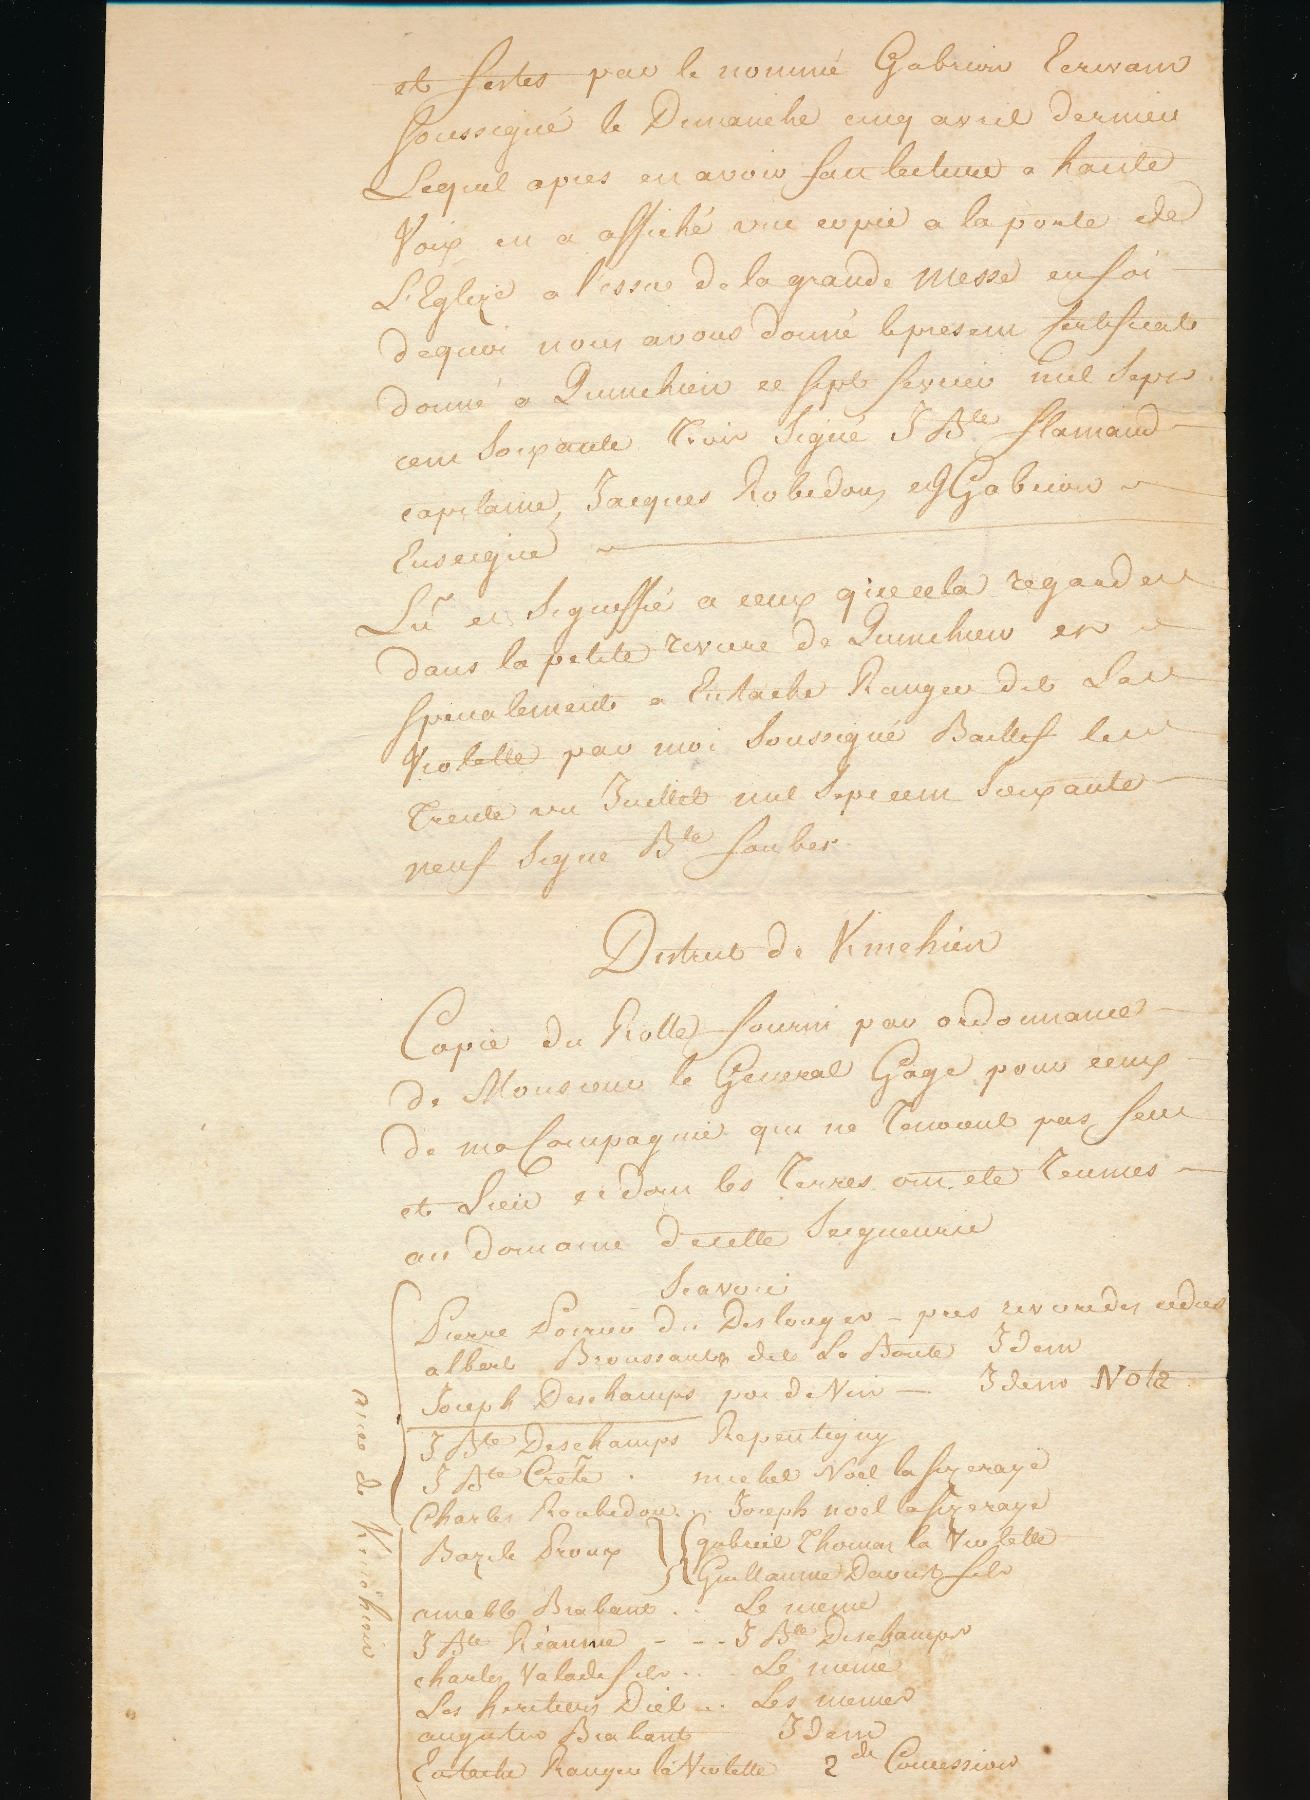 et festes par le nommé Gabrion Ecrivain
soussigné le Dimanche cinq avril dernier
Lequel apres en avoir fait lecture a haute
Voix en a affiché une copie a la porte de
L'Eglize a l'issue de la grande Messe en foi
dequoi nous avons donné le present Certificat
donné a Quinchien ce sept fevrier mil Sept
cent Soixante trois Signé J Bte flamand
capitaine, Jacques Robidoux et Gabrion
Enseigne
Lû et Signiffié a ceux que cela regarde
dans la petite riviere de Quinchien et
specialement a Eustache Ranger dit La
Violette par moi Soussigné Baillif le
Trente un Juillet mil Sept cent Soixante
neuf Signé Bte fauber
District de Kinchien
Copie du Rolle fourni par ordonnance
de Monsieur le General Gage pour ceux
de ma Compagnie qui ne Tenoient pas feu
et Lieu et dont les Terres ont eté Reunies
au domaine de cette Seigneurie
Scavoir
Pierre Poirier dit Deslonger - pres riviere des cedres
albert Broussant dit La Bonte Idem
Joseph Deschamps Idem Nota
J Bte Deschamps Repentigny
J Bte Crête . michel Noel la fizeraye
Charles Roubidou .. Joseph noel lafizeraye
Bazile Proux { gabriel Thomas la Violette
Guillaume Daoust fils
amable Brabant .. Le meme
J Bte Réaume - - - J Bte Deschamps
charles Valade fils ... Le meme
Les heritiers Diel .. Les memes
augustin Brabant Idem
Eustache Ranger la Violette 2de Concession
de Kinchien